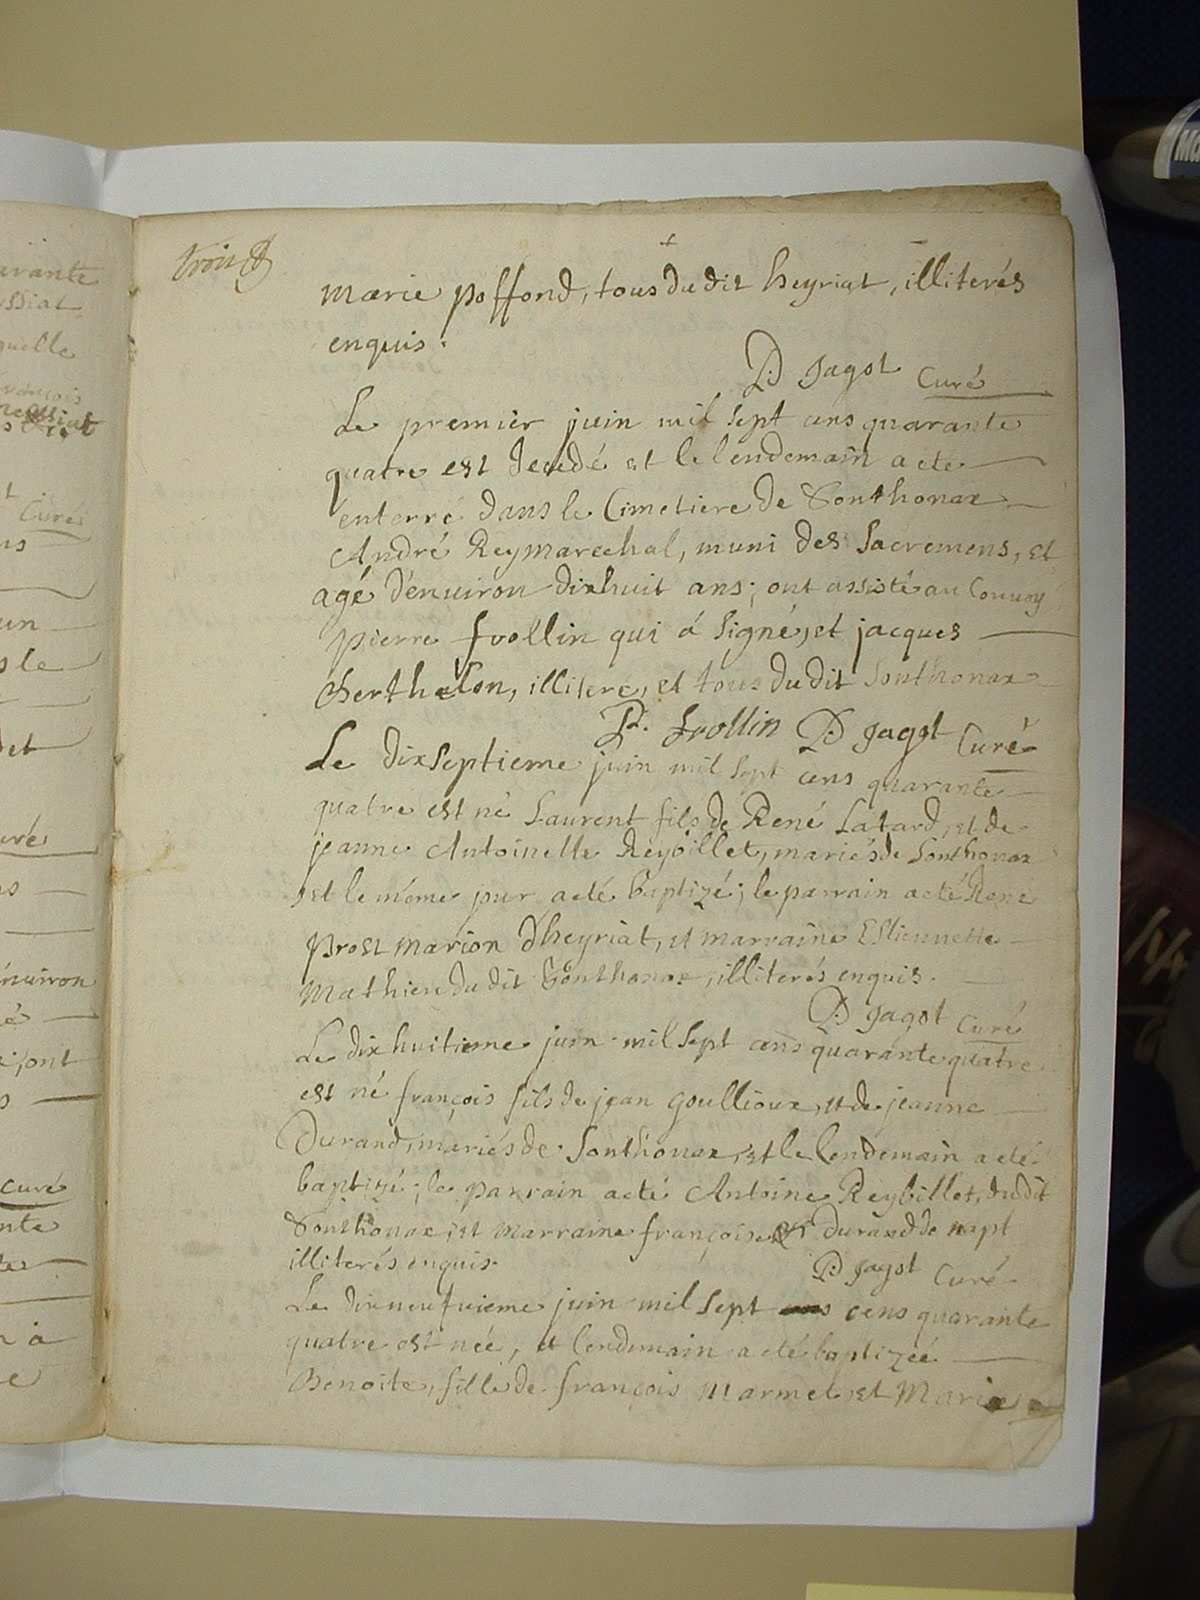 arante
ssiat
quelle
françois
Curé
ns
un
sle
det
uré
ns
environ
é
e, ont
s
curé
nte
te
n a
e
trois
marie poffond, tous du dit heyriat, illiterés
enquis.
D. Jagot Curé
Le premier juin mil sept cens quarante
quatre est decedé et le lendemain a eté
enterré dans le Cimetiere de Sonthonax
André Reymarechal, muni des Sacremens, et
agé d'environ dixhuit ans; ont assisté au Convoy
pierre frollin qui á signé, et jacques
Berthelon, illiteré, et tous du dit Sonthonax
P. frollin D. Jagot Curé
Le dixseptieme juin mil sept cens quarante
quatre est né Laurent fils de René Latard, et de
jeanne Antoinette Reybillet, mariés de Sonthonax
et le même jour a eté baptizé; le parrain a eté René
Prost marion d'heyriat, et marraine Estiennette
Mathieu du dit Sonthonax, illiterés enquis.
D. Jagot Curé
Le dixhuitieme juin mil sept cens quarante quatre
est né françois fils de jean Goullioux, et de jeanne
Durand, mariés de Sonthonax, et le lendemain a eté
baptizé; le parrain a eté Antoine Reybillet, du dit
Sonthonax, et marraine françoise durand de napt
illiterés enquis.
D. Jagot Curé
Le dixneufvieme juin mil sept cens quarante
quatre est née, et lendemain a eté baptizée
Benoite, fille de françois Marmet, et Marie